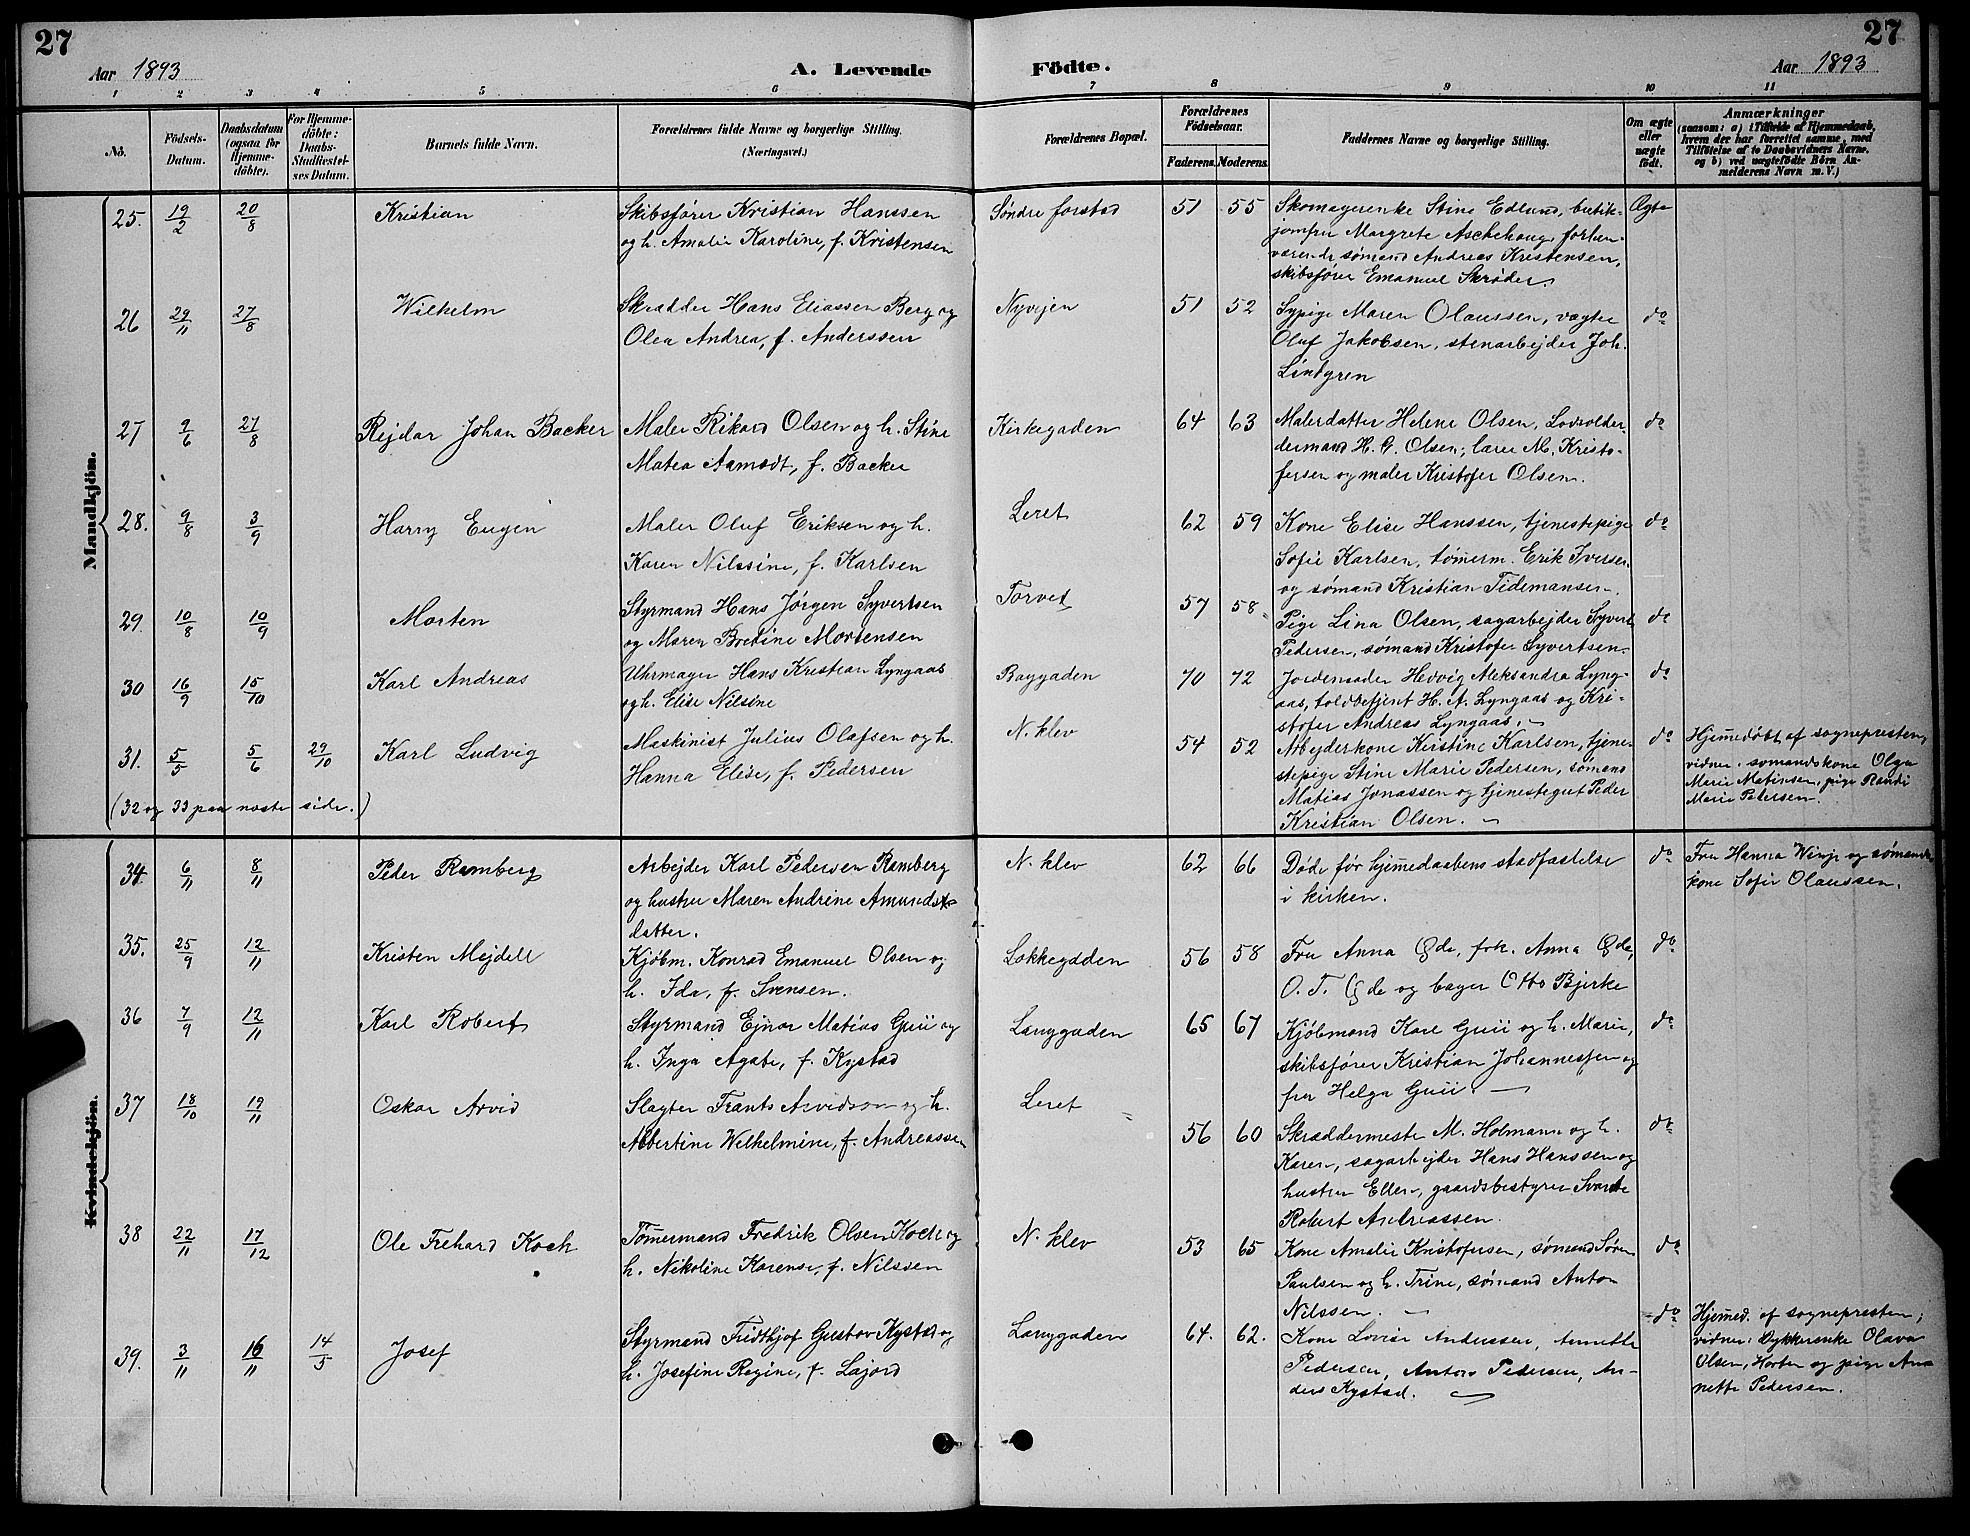 27
27
Aar 1893
A. Levende
Födte.
Aar 1893
1 2 3 4 5 6 7 8 9 10 11
No.
Födsels-
Datum.
Daabsdatum
(ogsaa for
Hjemme-
döbte).
For Hjemme-
döbte:
Daabs-
Stadfæstel-
ses Datum.
Barnets fulde Navn.
Forældrenes fulde Navne og borgerlige Stilling.
(Næringsvei.)
Forældrenes Bopæl.
Forældrenes
Födselsaar.
Faderens. Moderens.
Faddernes Navne og borgerlige Stilling.
Om ægte
eller
uægte
födt.
Anmærkninger
(saasom: a) i Tilfælde af Hjemmedaab,
hvem der har forrettet samme, med
Tilföielse af to Daabsvidners Navne,
og b) ved uægtefödte Börn An-
melderens Navn m.V.)
Mandkjön.
25. 19/2 20/8 Kristian
Skibsfører Kristian Hanssen
og h. Amalie Karoline, f. Kristensen
Søndre forstad
51 55
Skomagerenke Stine Edlund, butik-
jomfru Margrete Aschehoug, forhen-
værende sømand Andreas Kristensen,
skibsfører Emanuel Skrøder.
Ægte
26 29/11 27/8 Wilhelm
Skrædder Hans Eliassen Berg og
Olea Andrea, f. Anderssen
Nyvejen
51 52
Sypige Maren Olaussen, vægter
Oluf Jakobsen, stenarbejder Joh.
Lindgren
do
27 9/6 27/8 Rejdar Johan Backer
Maler Rikard Olsen og h. Stine
Matea Aamodt, f. Backer
Kirkegaden
64 63
Malerdatter Helene Olsen, Lodsolder-
dermand H. G. Olsen, lærer M. Kristo-
fersen og maler Kristofer Olsen.
do
28. 9/8 3/9 Harry Eugen
Maler Oluf Eriksen og h.
Karen Nilssine, f. Karlsen
Leret
62 59
Kone Elise Hanssen, tjenestepige
Sofie Karlsen, tømerm. Erik Iversen
og sømand Kristian Tidemansen.
do
29. 10/8 10/9 Morten
Styrmand Hans Jørgen Syvertsen
og Maren Bretine Mortensen
Torvet
57 58
Pige Lina Olsen, sagarbejder Syvert
Pedersen, sømand Kristofer Syvertsen.
do
30 16/9 15/10 Karl Andreas
Uhrmager Hans Kristian Lyngaas
og h. Elise Nilsine
Baggaden
70 72
Jordemoder Hedvig Aleksandra Lyng-
aas, toldbetjent H. A. Lyngaas og Kri-
stofer Andreas Lyngaas.
do
31. 5/5 5/6 29/10 Karl Ludvig
Maskinist Julius Olafsen og h.
Hanna Elise, f. Pedersen
N. klev
54 52
Arbejderkone Kirstine Karlsen, tjene-
stepige Stine Marie Pedersen, sømand
Matias Jonassen og tjenestegut Peder
Kristian Olsen.
do
Hjemedøbt af sognepresten,
vidner: sømandskone Olga
Marie Matisen, pige Randi
Marie Petersen.
(32 og 33 paa næste side.)
Kvindekjön.
34. 6/11 8/11 Peder Ramberg
Arbejder Karl Pedersen Ramberg
og hustru Maren Andrine Amunds-
datter.
N. klev
62 66
Døde før hjemedaabens stadfæstelse
i kirken.
do
Fru Hanna Winje og sømands-
kone Sofie Olaussen.
35. 25/9 12/11 Kristen Mejdell
Kjøbm. Konrad Emanuel Olsen og
h. Ida, f. Svensen.
Løkkegaden
56 58
Fru Anna Gde, frk. Anna Gde,
O. T. Gde og bager Otto Bjerke
do
36 7/9 12/11 Karl Robert
Styrmand Ejnar Matias Guii og
h. Inga Agate, f. Kystad
Langgaden
65 67
Kjøbmand Karl Guii og h. Marie,
skibsfører Kristian Johannessen og
fru Helga Guii.
do
37 18/10 19/11 Oskar Arvid
Slagter Frants Arvidson og h.
Albertine Wilhelmine, f. Andreassen
Leret
56 60
Skræddermester M. Holmann og h.
Karen, sagarbejder Hans Hanssen og
hustru Ellen, gaardsbestyrer Svante
Robert Andreassen.
do
38 22/11 17/12 Ole Frehard Koch
Tømermand Fredrik Olsen Koch og
h. Nikoline Karense, f. Nilssen
N. klev
53 65
Kone Amalie Kristofersen, sømand Søren
Paulsen og h. Trine, sømand Anton
Nilssen.
do
39. 3/11 16/11 14/5 Josef
Styrmand Fridthjof Gustav Kystad og
h. Josefine Regine, f. Lajord
Langgaden
64. 62.
Kone Lovise Anderssen, Annette
Pedersen, Anton Pedersen, An-
ders Kystad.
do
Hjemed. af sognepresten;
vidner: Dykkerenke Olava
Olsen, Horten og pige An-
nette Pedersen.